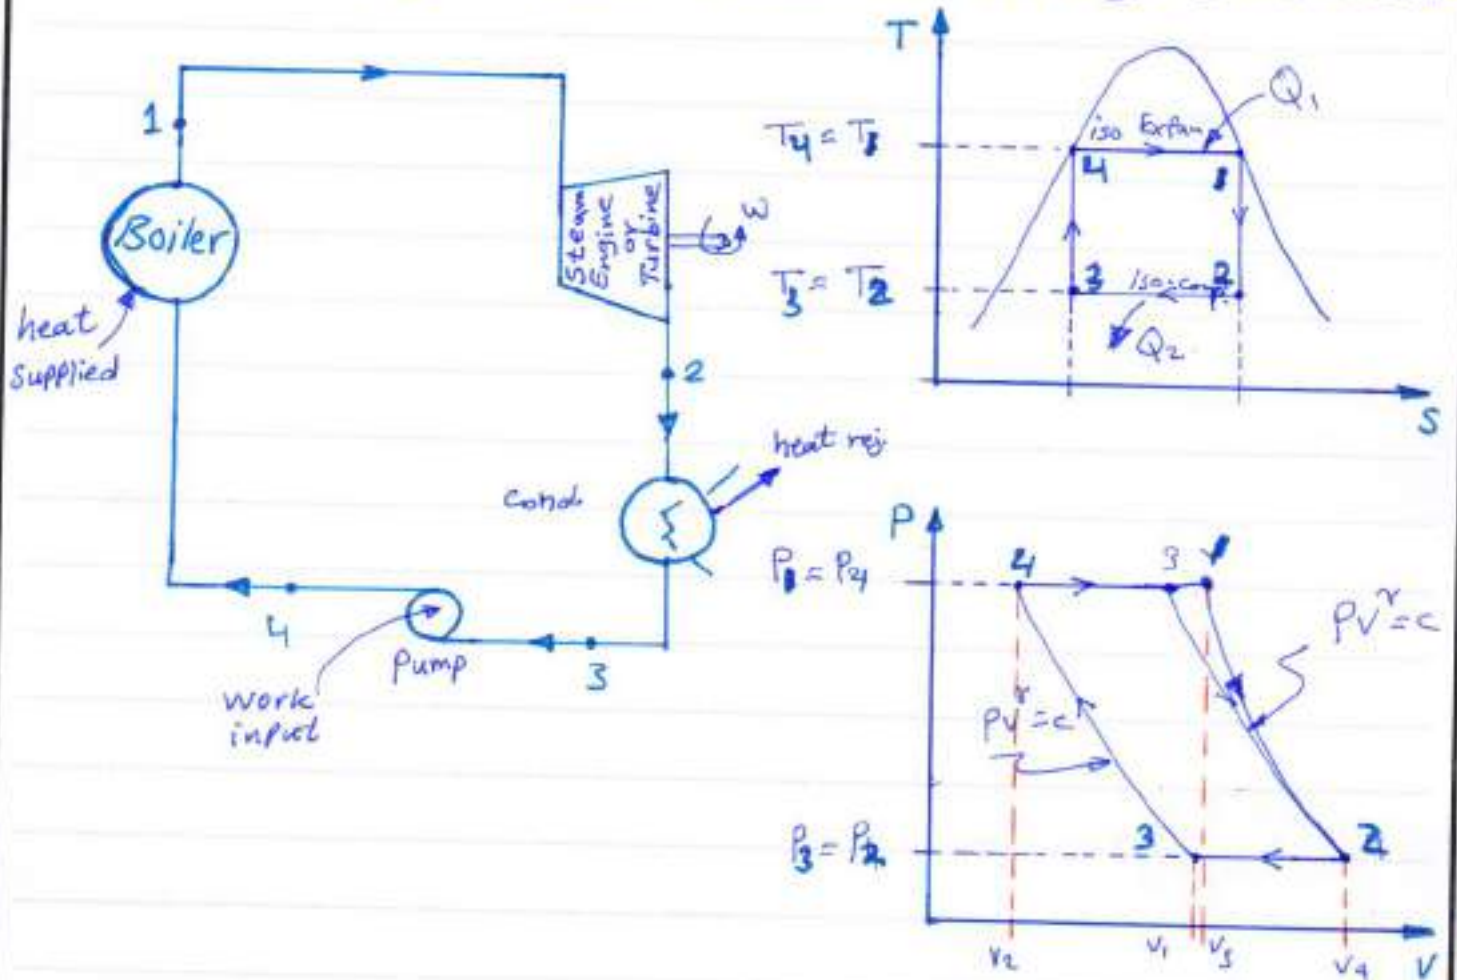 1
Boiler
heat
supplied
Steam
Engine
or
Turbine
ω
2
heat rej.
Cond.
3
Pump
4
work
input
T
T4 = T1
T3 = T2
iso Expan
Q1
4
1
3
iso-comp.
2
Q2
S
P
P1 = P4
4
3
1
PV^γ = c
PV^γ = c
P3 = P2
3
2
V2
V1
V4
V